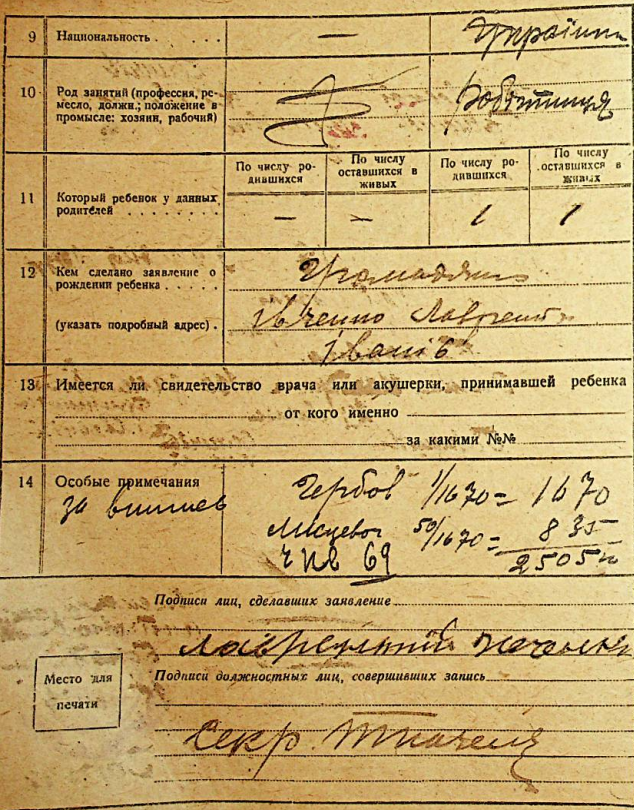 9 Национальность . . . . — Українк
10 Род занятий (профессия, ре-
месло, должн.; положение в
промысле: хозяин, рабочий)
робітниця
По числу ро-
дившихся
По числу
оставшихся в
живых
По числу ро-
дившихся
По числу
оставшихся в
живых
11 Который ребенок у данных
родителей . . . . . . . .
— — 1 1
12 Кем сделано заявление о
рождении ребенка . . . . .
Громадян
(указать подробный адрес) .
Івченко Лаврент
Іванів
13 Имеется ли свидетельство врача или акушерки, принимавшей ребенка
от кого именно
за какими №№
14 Особые примечания
за
Гербов 1/1670= 1670
Місцевог 50/1670= 835
2505
69
Подписи лиц, сделавших заявление
Место для
печати
Подписи должностных лиц, совершивших запись
Секр.